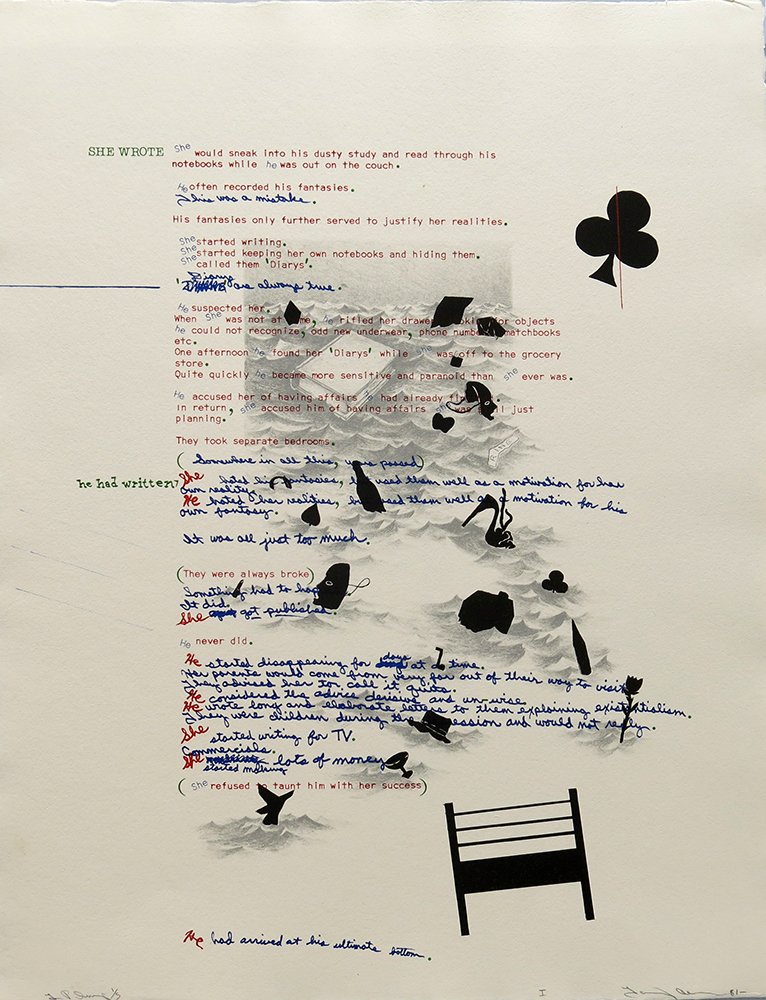 SHE WROTE
She would sneak into his dusty study and read through his
notebooks while he was out on the couch.
He often recorded his fantasies.
This was a mistake.
His fantasies only further served to justify her realities.
She started writing.
She started keeping her own notebooks and hiding them.
She called them 'Diarys'.
'Diarys are always true.
He suspected her.
When She was not at me, he rifled her drawe for objects
he could not recognize, odd new underwear, phone numb matchbooks
etc.
One afternoon he found her 'Diarys' while she was off to the grocery
store.
Quite quickly he became more sensitive and paranoid than she ever was.
He accused her of having affairs he had already
in return, she accused him of having affairs she was just
planning.
They took separate bedrooms.
(Somewhere in all this, passed)
he had written,
She hated his fantasies, used them well as a motivation for her
own reality.
He hated her realities, used them well motivation for his
own fantasy.
It was all just too much.
(They were always broke)
Something had to
It did.
She got published.
He never did.
He started disappearing for days at a time.
Her parents would come from very far out of their way to visit.
They advised her to call it quits.
He considered the advice decisive and un-wise.
He wrote long and elaborate letters to them explaining existentialism.
They were children during the ession and would not
She started writing for TV.
Commercials.
She started making lots of money
(She refused to taunt him with her success)
He had arrived at his ultimate bottom.
I
81-